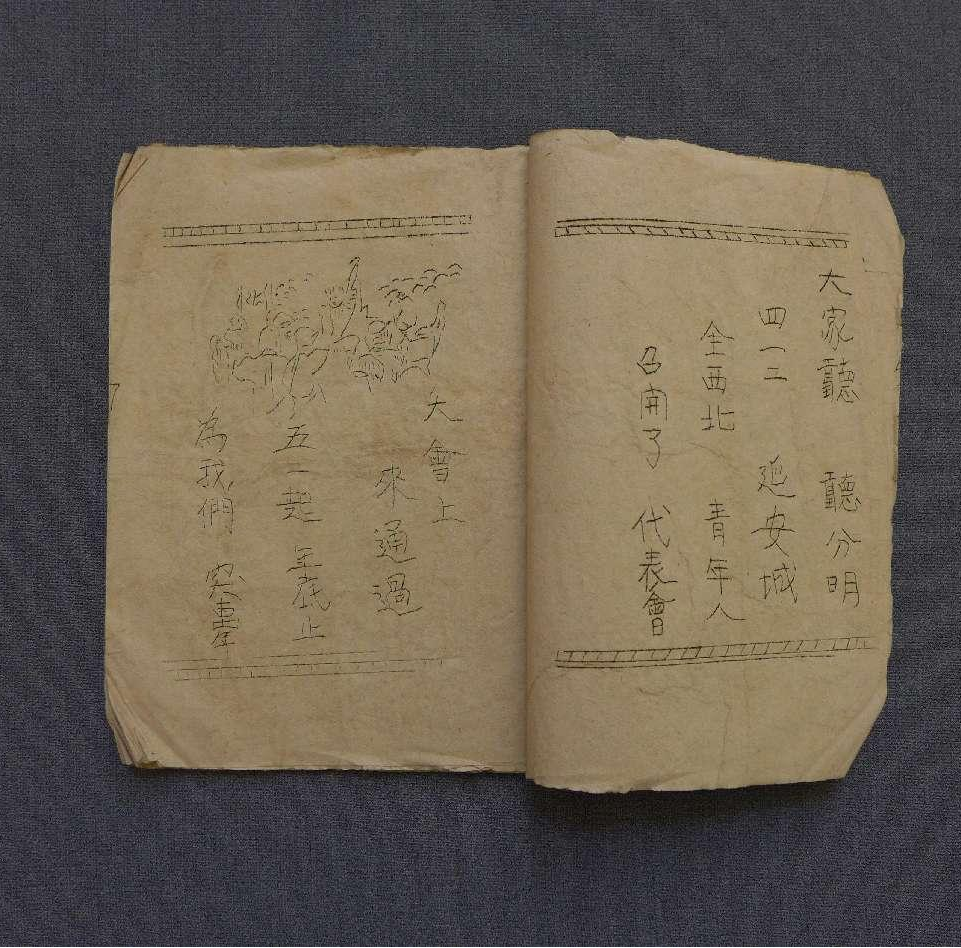 大家聽 聽分明
四一二 延安城
全西北 青年人
召開了 代表會
大會上
來通過
五一起 底止
為我們